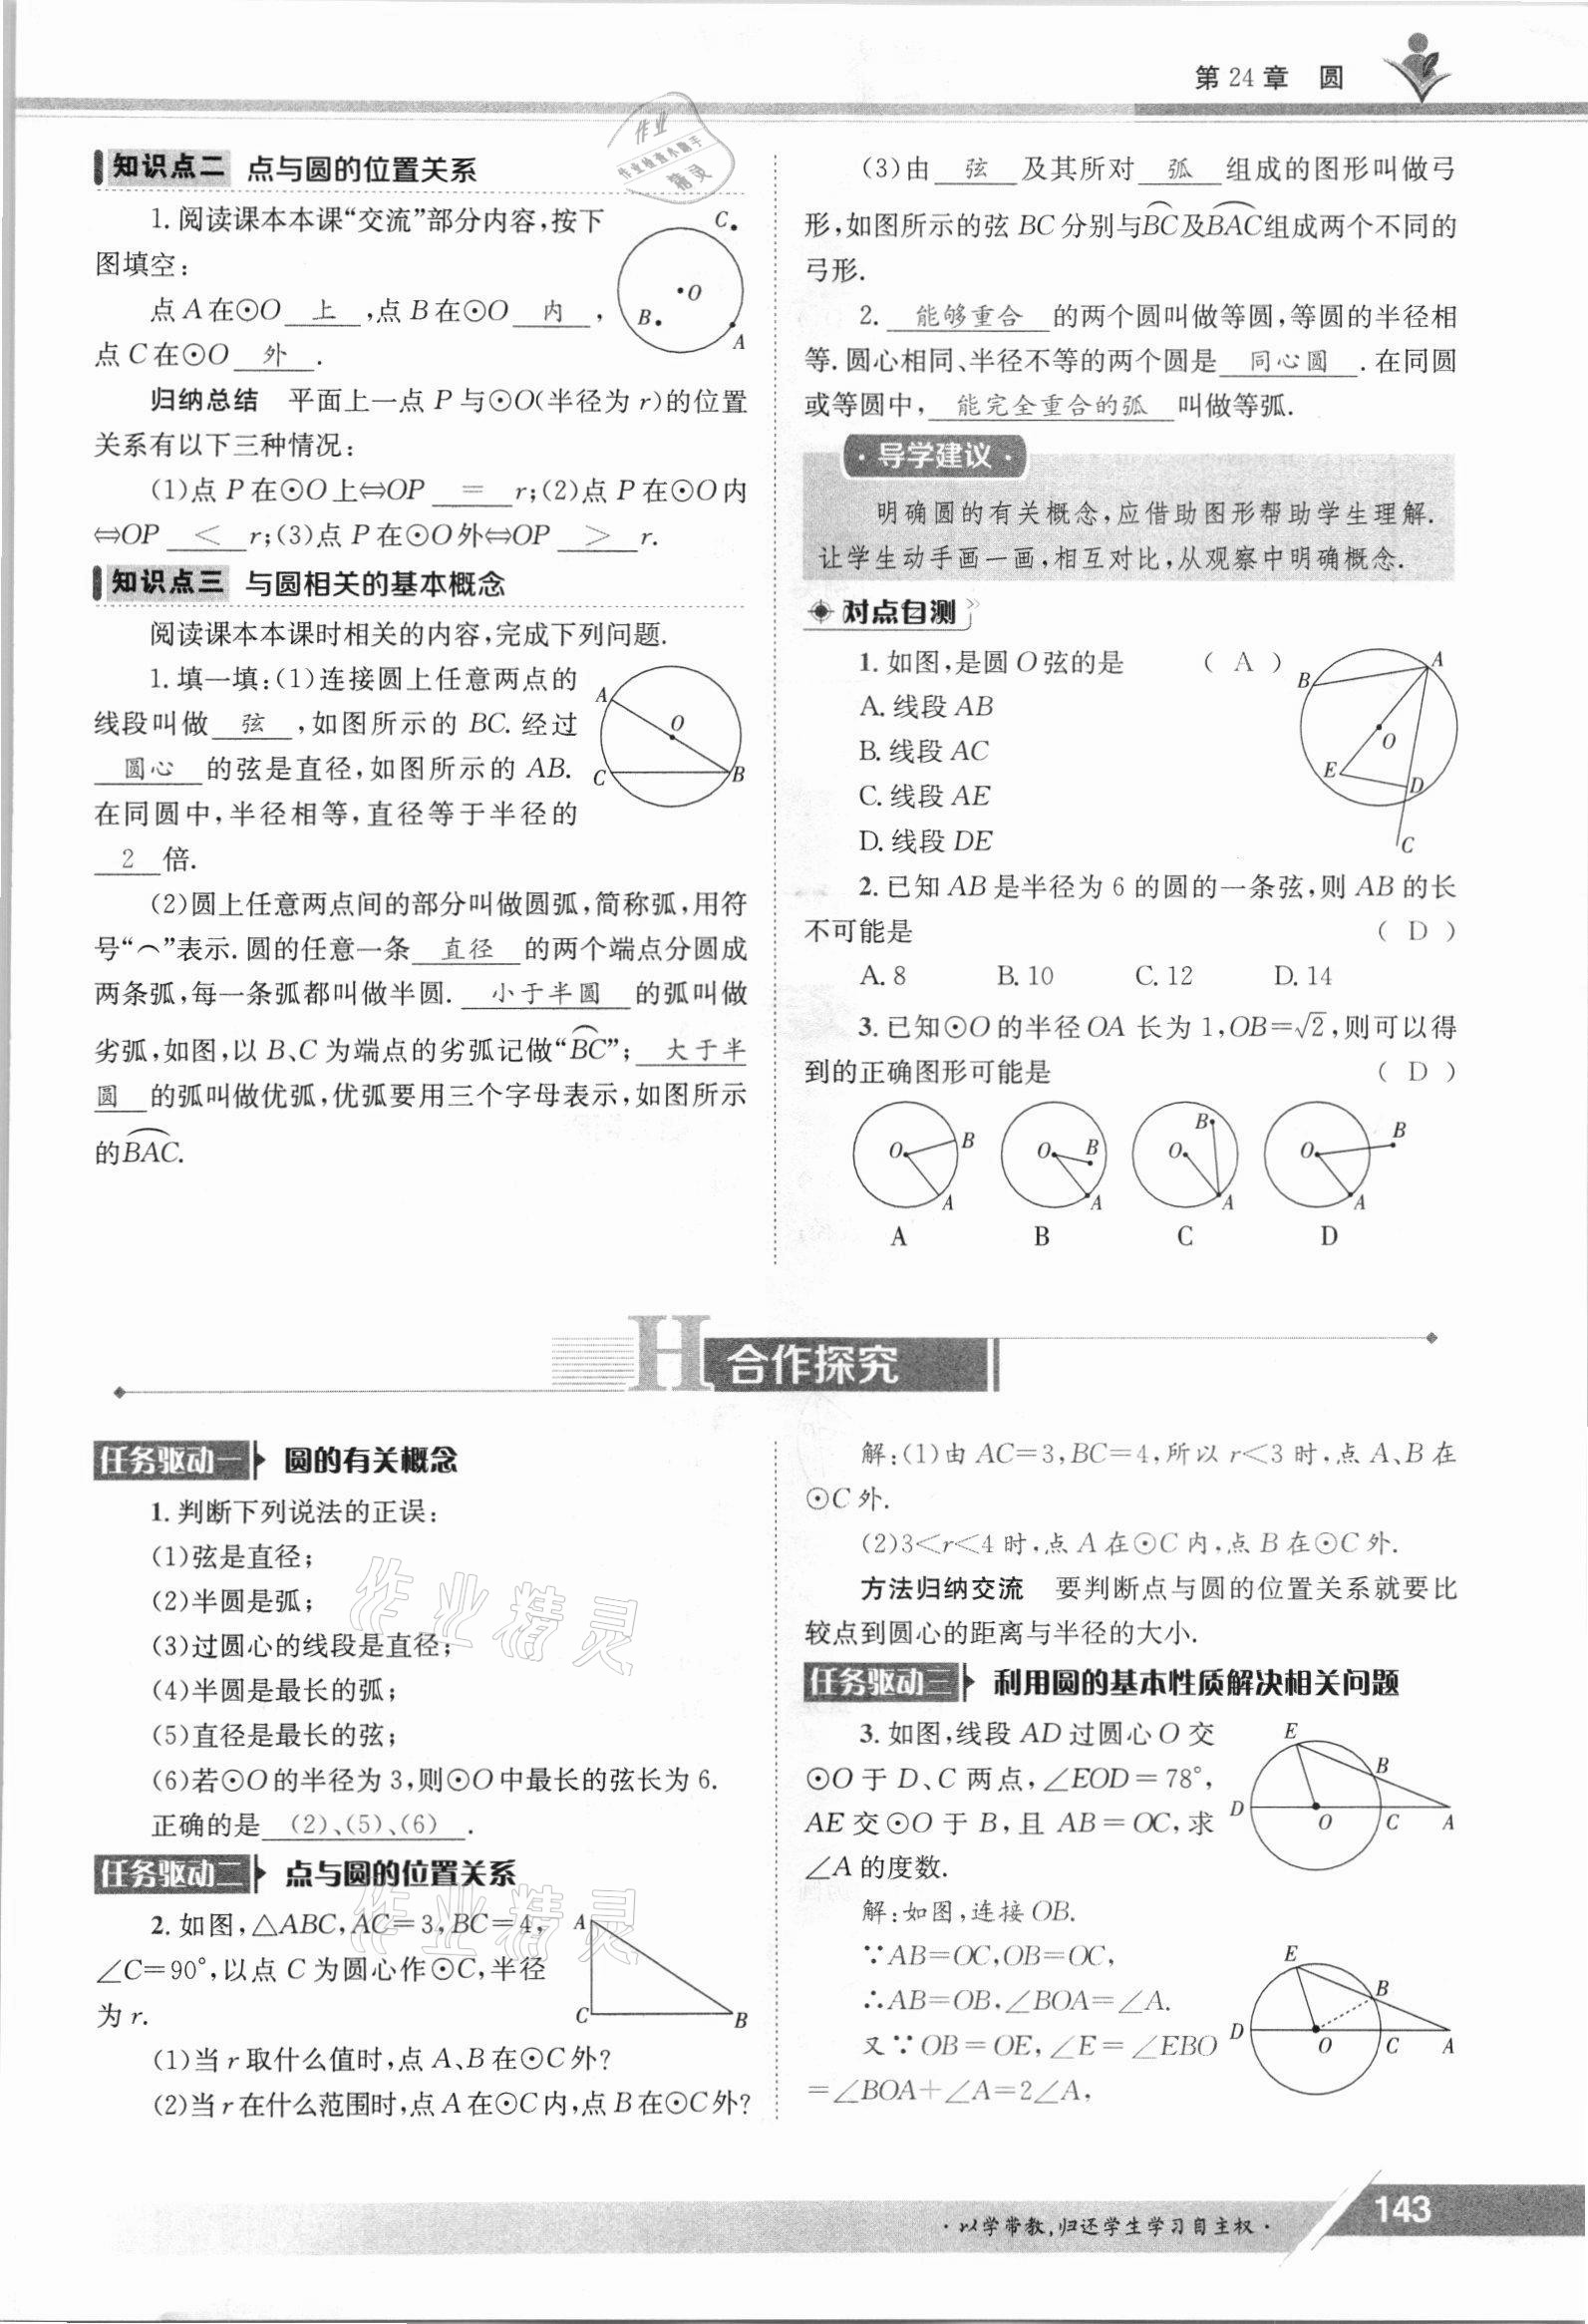 第24章 圆
知识点二 点与圆的位置关系
1.阅读课本本课“交流”部分内容,按下
图填空:
点A在⊙O 上 ,点B在⊙O 内 ,
点C在⊙O 外 .
C
O
B
A
归纳总结 平面上一点P与⊙O(半径为r)的位置
关系有以下三种情况:
(1)点P在⊙O上⇔OP = r;(2)点P在⊙O内
⇔OP < r;(3)点P在⊙O外⇔OP > r.
知识点三 与圆相关的基本概念
阅读课本本课时相关的内容,完成下列问题.
1.填一填:(1)连接圆上任意两点的
线段叫做 弦 ,如图所示的BC.经过
圆心 的弦是直径,如图所示的AB.
在同圆中,半径相等,直径等于半径的
2 倍.
A
O
C
B
(2)圆上任意两点间的部分叫做圆弧,简称弧,用符
号“⌒”表示.圆的任意一条 直径 的两个端点分圆成
两条弧,每一条弧都叫做半圆. 小于半圆 的弧叫做
劣弧,如图,以B、C为端点的劣弧记做“B͡C”; 大于半
圆 的弧叫做优弧,优弧要用三个字母表示,如图所示
的B͡AC.
(3)由 弦 及其所对 弧 组成的图形叫做弓
形,如图所示的弦BC分别与B͡C及B͡AC组成两个不同的
弓形.
2. 能够重合 的两个圆叫做等圆,等圆的半径相
等.圆心相同、半径不等的两个圆是 同心圆 .在同圆
或等圆中, 能完全重合的弧 叫做等弧.
·导学建议·
明确圆的有关概念,应借助图形帮助学生理解.
让学生动手画一画,相互对比,从观察中明确概念.
对点自测
1.如图,是圆O弦的是 ( A )
A.线段AB
B.线段AC
C.线段AE
D.线段DE
A
B
O
E
D
C
2.已知AB是半径为6的圆的一条弦,则AB的长
不可能是 ( D )
A.8 B.10 C.12 D.14
3.已知⊙O的半径OA长为1,OB=√2,则可以得
到的正确图形可能是 ( D )
O B A
O B A
B O A
O B A
A B C D
H 合作探究
任务驱动一 圆的有关概念
1.判断下列说法的正误:
(1)弦是直径;
(2)半圆是弧;
(3)过圆心的线段是直径;
(4)半圆是最长的弧;
(5)直径是最长的弦;
(6)若⊙O的半径为3,则⊙O中最长的弦长为6.
正确的是 (2)、(5)、(6) .
任务驱动二 点与圆的位置关系
2.如图,△ABC,AC=3,BC=4,
∠C=90°,以点C为圆心作⊙C,半径
为r.
A
C
B
(1)当r取什么值时,点A、B在⊙C外?
(2)当r在什么范围时,点A在⊙C内,点B在⊙C外?
解:(1)由AC=3,BC=4,所以r<3时,点A、B在
⊙C外.
(2)3<r<4时,点A在⊙C内,点B在⊙C外.
方法归纳交流 要判断点与圆的位置关系就要比
较点到圆心的距离与半径的大小.
任务驱动三 利用圆的基本性质解决相关问题
3.如图,线段AD过圆心O交
⊙O于D、C两点,∠EOD=78°,
AE交⊙O于B,且AB=OC,求
∠A的度数.
E
B
D
O
C
A
解:如图,连接OB.
∵AB=OC,OB=OC,
∴AB=OB,∠BOA=∠A.
又∵OB=OE,∠E=∠EBO
=∠BOA+∠A=2∠A,
E
B
D
O
C
A
·以学带教,归还学生学习自主权·
143
作业精灵
作业精灵
作业
作业检查小助手
精灵